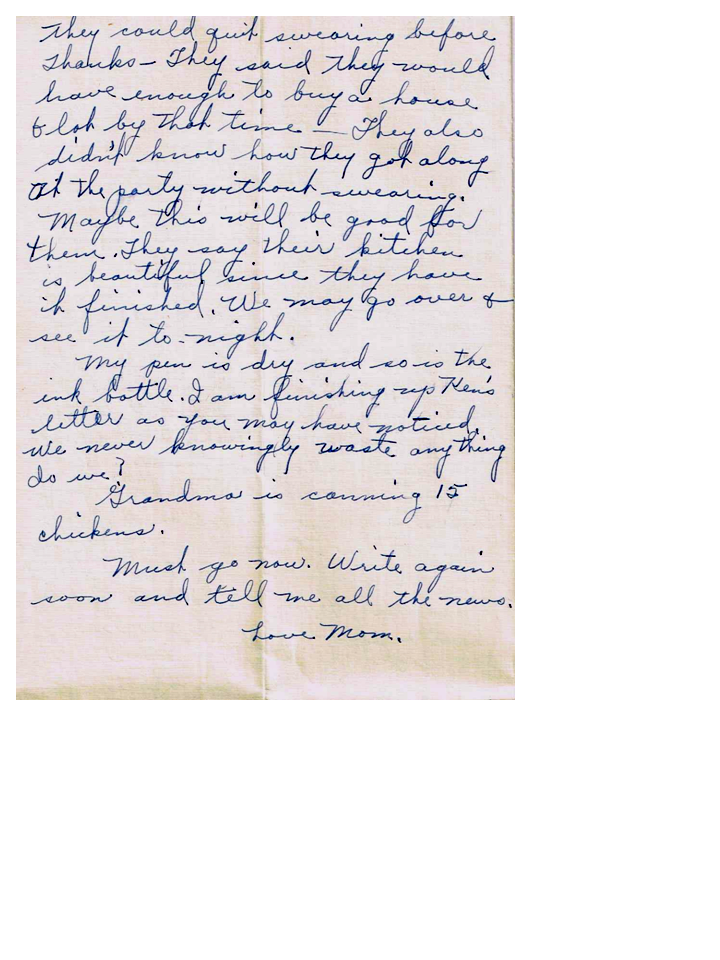 they could quit swearing before
Thanks — They said they would
have enough to buy a house
& lot by that time — They also
didn't know how they got along
at the party without swearing.
Maybe this will be good for
them. They say their kitchen
is beautiful since they have
it finished. We may go over &
see it to-night.
My pen is dry and so is the
ink bottle. I am finishing up Ken's
letter as you may have noticed.
We never knowingly waste anything
do we?
Grandma is canning 15
chickens.
Must go now. Write again
soon and tell me all the news.
Love Mom.